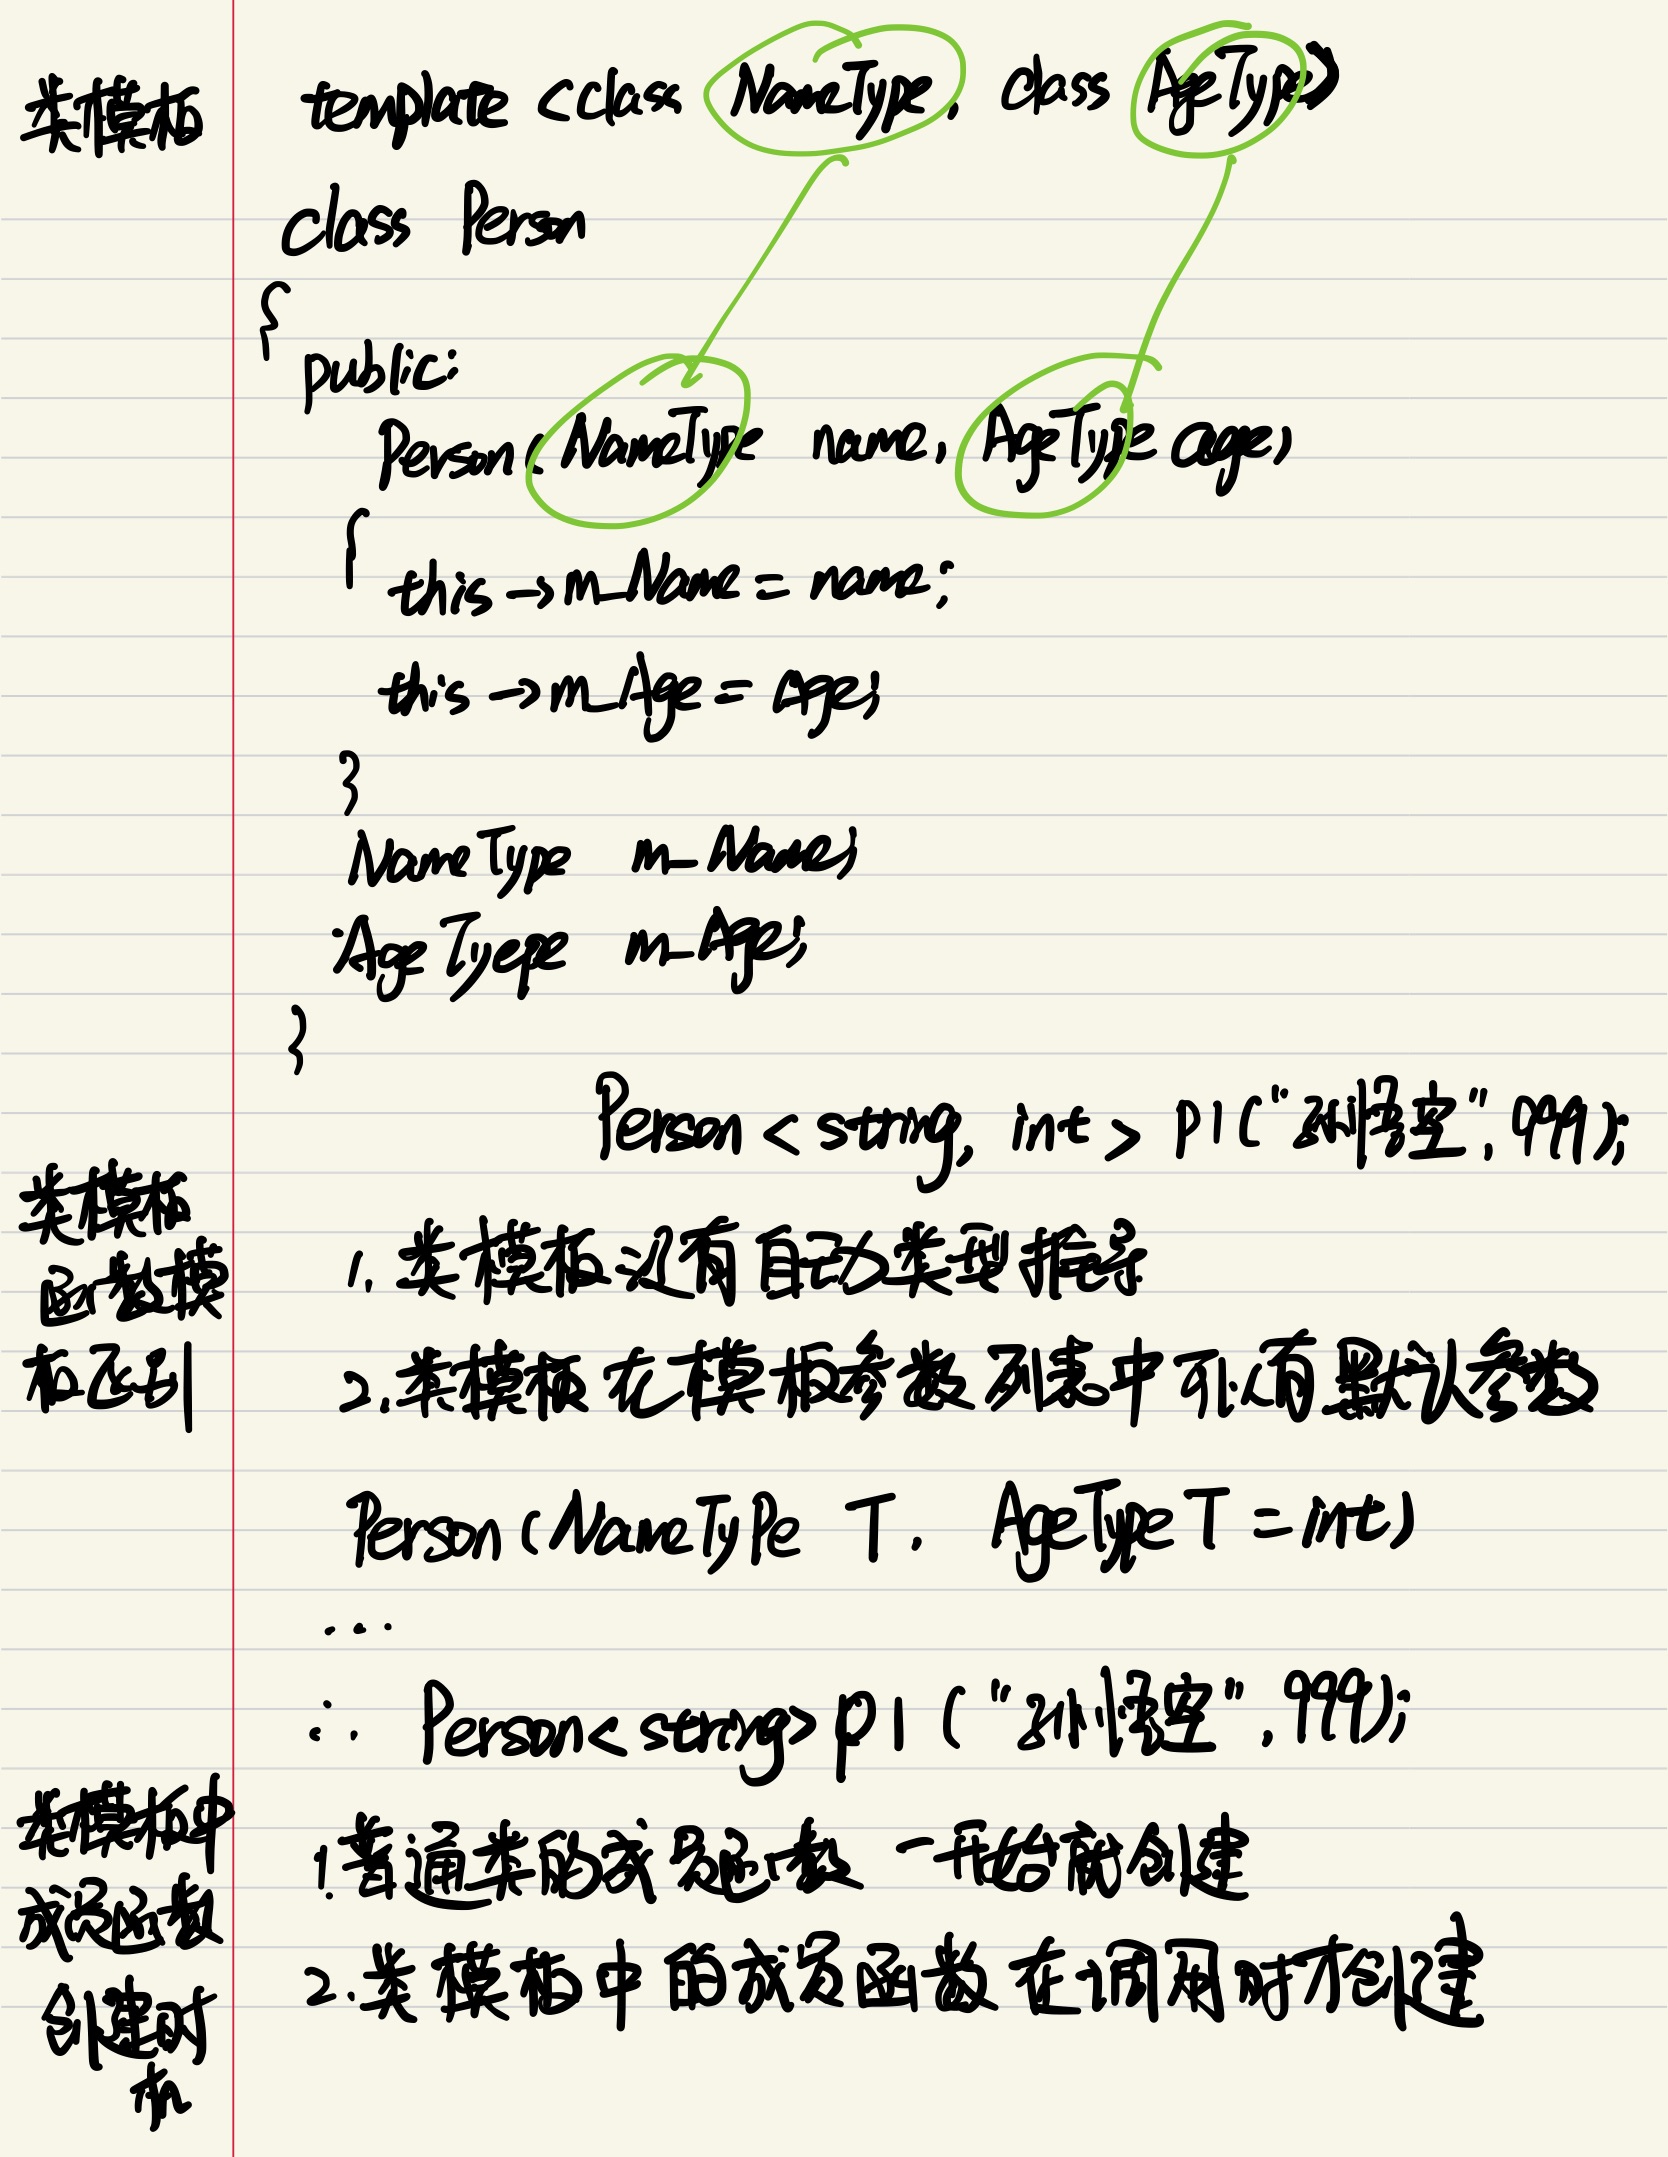 类模板
template <class NameType, class AgeType>
class Person
{
public:
Person(NameType name, AgeType age)
{
this->m_Name = name;
this->m_Age = Age;
}
NameType m_Name;
AgeTyepe m_Age;
}
Person < string, int > p1("孙悟空", 999);
类模板
函数模
板区别
1. 类模板没有自动类型推导
2. 类模板在模板参数列表中可以有默认参数
Person (NameType T, AgeType T = int)
...
∴ Person<string> p1 ("孙悟空", 999);
类模板中
成员函数
创建时
机
1. 普通类的成员函数一开始就创建
2. 类模板中的成员函数在调用时才创建